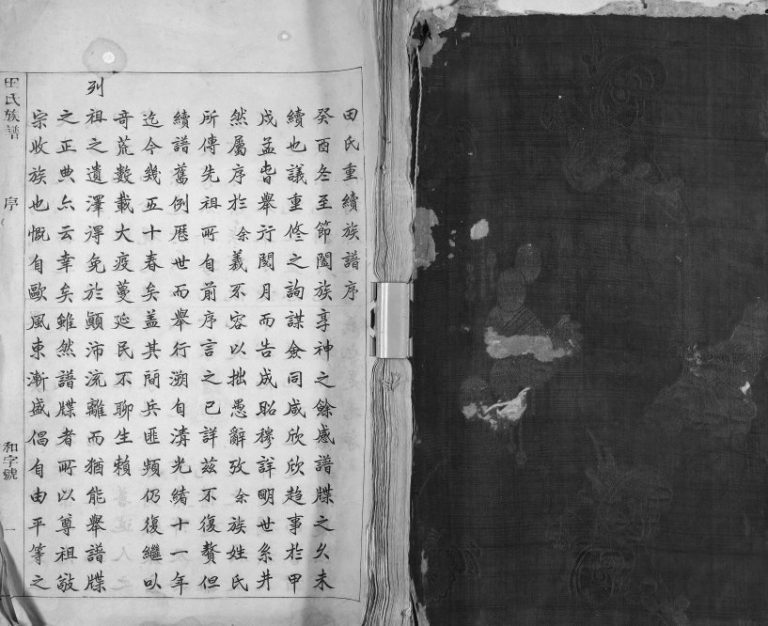 田氏重續族譜序
癸酉冬至節闔族享神之餘感譜牒之久未
續也議重修之詢謀僉同咸欣欣趨事於甲
戌孟旾舉行閱月而告成昭穆詳明世系井
然屬序於余義不容以拙愚辭攷余族姓氏
所傳先祖所自前序言之已詳茲不復贅但
續譜舊例歷世而舉行溯自清光緒十一年
迄今幾五十春矣蓋其間兵匪頻仍復繼以
奇荒數載大疫蔓延民不聊生賴
列祖之遺澤得免於顛沛流離而猶能舉譜牒
之正典亦云幸矣雖然譜牒者所以尊祖敬
宗收族也慨自歐風東漸盛倡自由平等之
田氏族譜 序 和字號 一